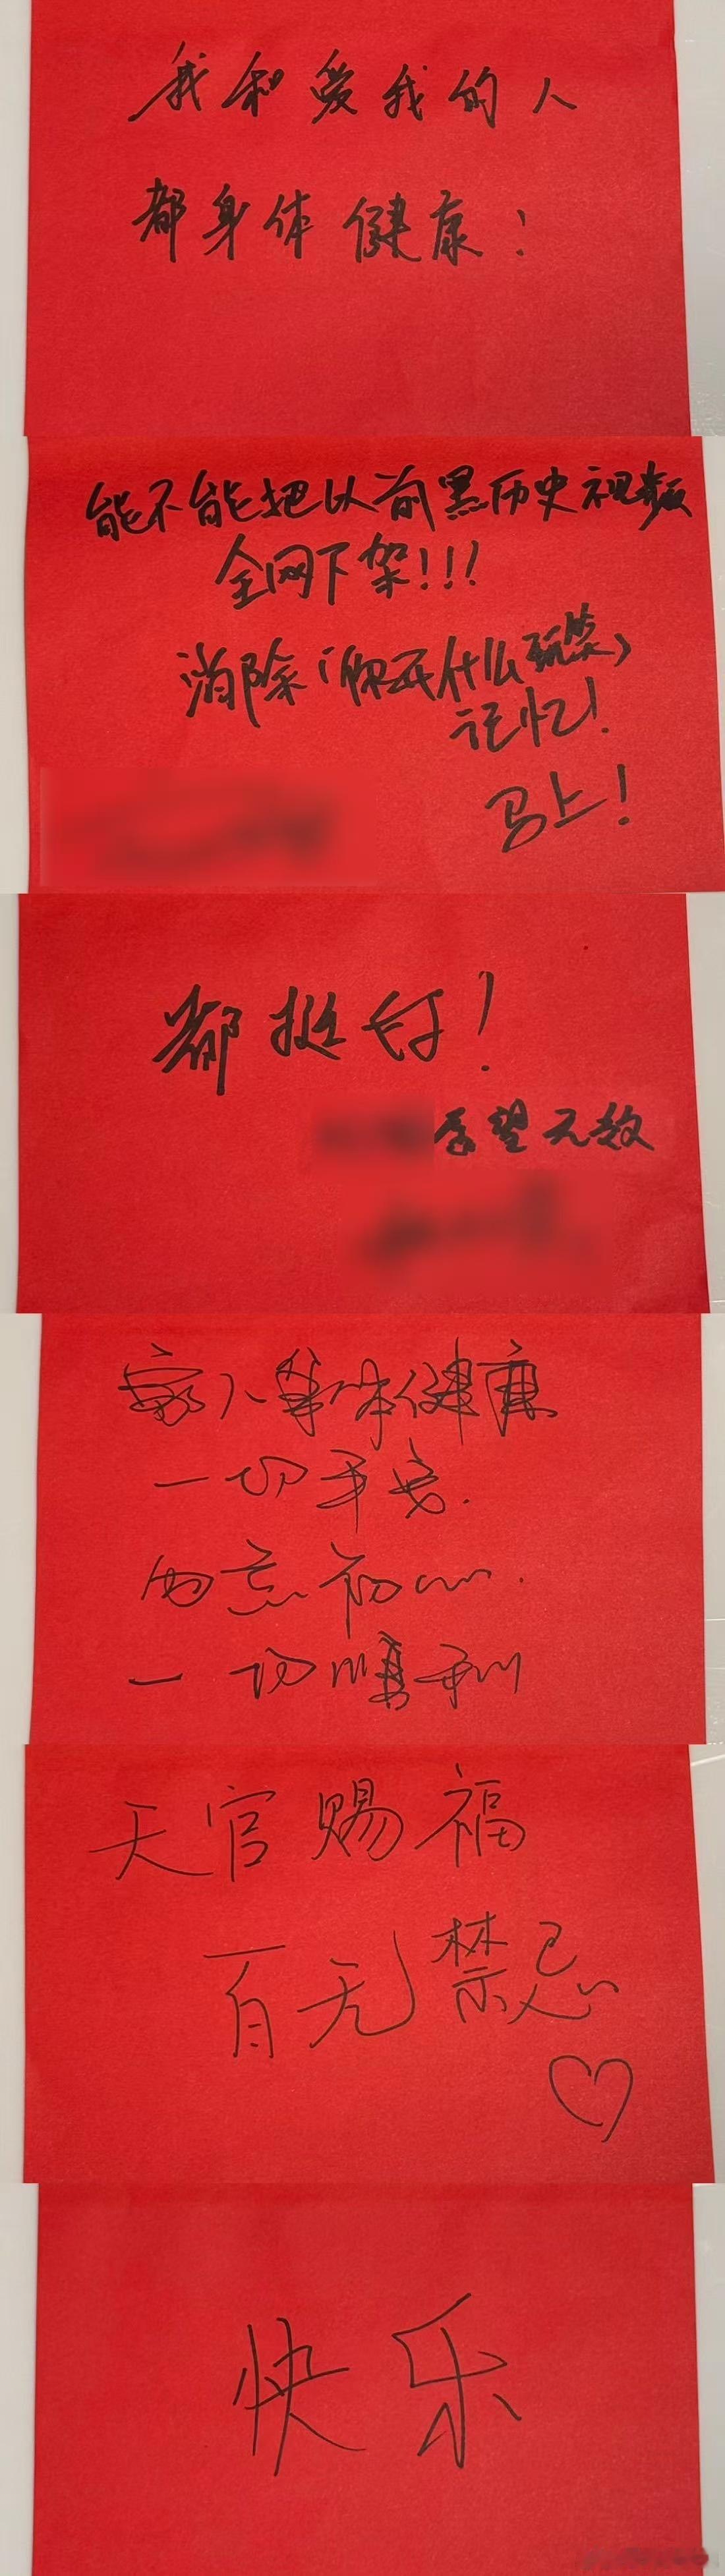 我和爱我的人
都身体健康！
能不能把以前黑历史视频
全网下架!!!
消除「你开什么玩笑」
记忆！
马上！
都挺好！
希望无救
家人身体健康
一切平安.
勿忘初心.
一切顺利
天官赐福
百无禁忌
快乐